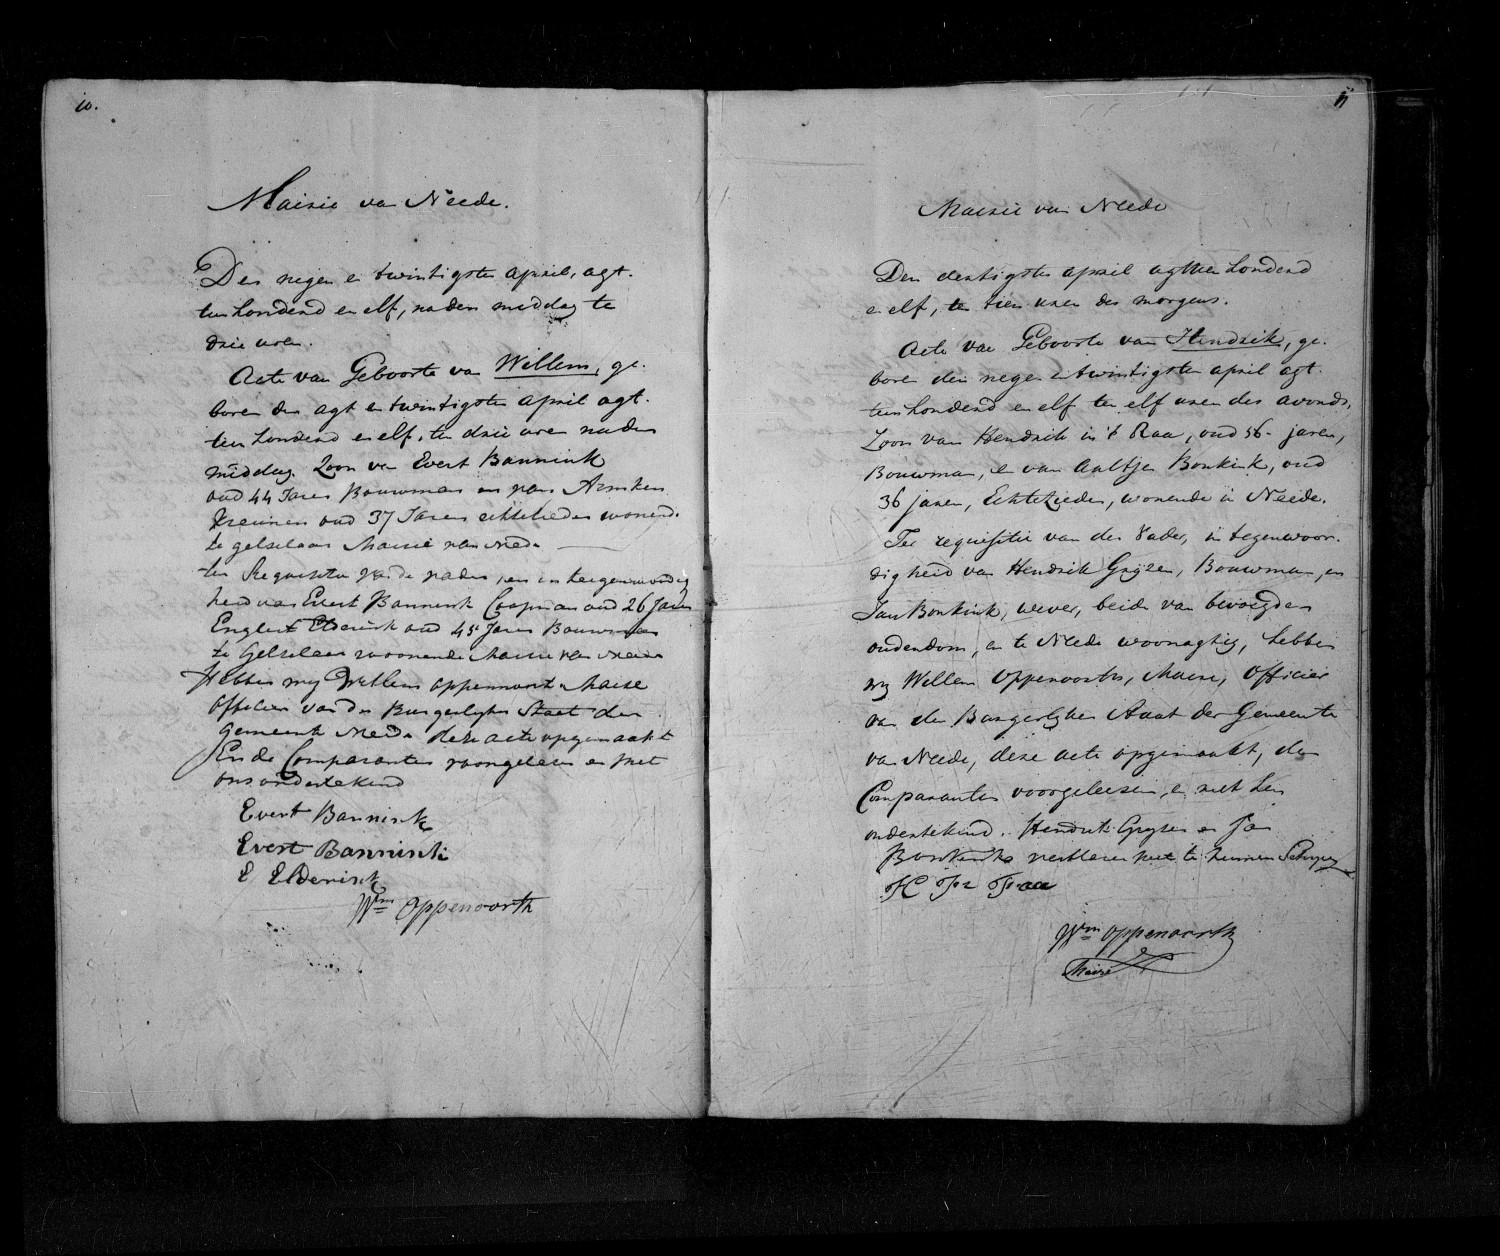 10.
Mairie van Neede.
Den negen en twintigsten april, agt-
tien honderd en elf, na den middag te
drie uren.
Acte van Geboorte van Willem, ge-
boren den agt en twintigsten april agt-
tien honderd en elf, ten drie uren na den
middag. Zoon van Evert Bannink
oud 44 Jaren Bouwman en van
oud 37 Jaren echtelieden wonend.
te gelselaar Mairie van Neede
ter Requisitie van de vader, en in teegenwoordig
heid van Evert Bannink Coopman oud 26 Jaren
Englert Elderink oud 45 Jaren Bouwman
te Gelselaar woonende Mairie van Neede
Hebben wy Willem oppenoort Maire
officier van der Burgerlyke Staat der
gemeente Neede deze acte opgemaakt
En de Comparanten voorgelesen en met
ons ondertekend
Evert Bannink
Evert Bannink
E Elderink
Wm Oppenoorth
11
Mairie van Neede
Den dertigsten april agttien honderd
en elf, te tien uren des morgens.
Acte van Geboorte van Hendrik, ge-
boren den negen en twintigsten april agt-
tien honderd en elf ten elf uren des avonds,
Zoon van Hendrik in 't Raa, oud 36 jaren,
Bouwman, en van Aaltjen Bonkink, oud
36 jaren, Echtelieden, wonende in Neede.
Ter requisitie van den Vader, in tegenwoor-
digheid van Hendrik Gryzen, Bouwman, en
Jan Bonkink, wever, beide van bevoegden
ouderdom, en te Neede woonagtig, hebben
wy Willem Oppenoorth, Maire, Officier
van den Burgerlyken Staat der Gemeente
van Neede, deze acte opgemaakt, den
Comparanten voorgeleesen, en met hen
ondertekend. Hendrik Gryzen en Jan
Bonkink verklaren niet te kunnen Schryven
H
Wm Oppenoorth
Maire